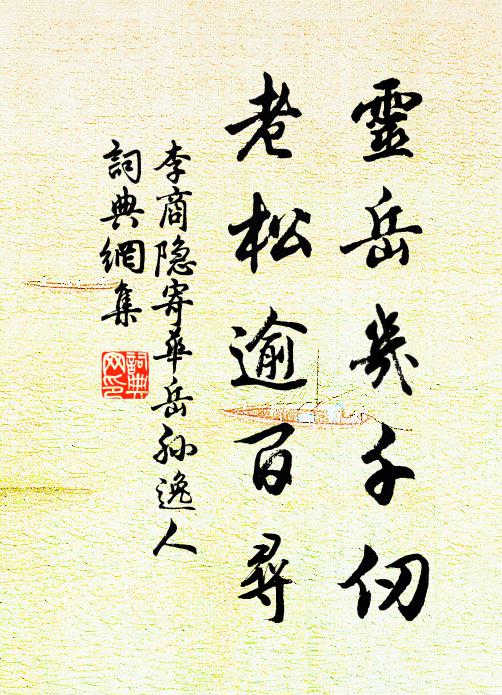 靈岳幾千仞
老松逾百尋
李商隐寄華岳孙逸人
詞典網集
詞典网印